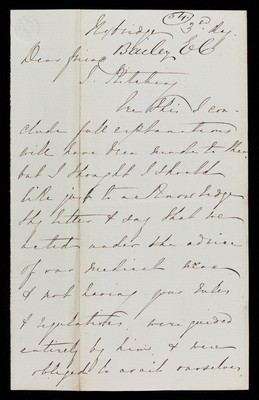 3rd day
Bailey EC
Dear friend
J. Kitching
Ere this I con-
clude full explanations
will have been made to thee
but I thought I should
like just to acknowledge
thy letter & say that we
acted under the advice
of our medical man
& not having your rules
& regulations were guided
entirely by him & were
obliged to avail ourselves